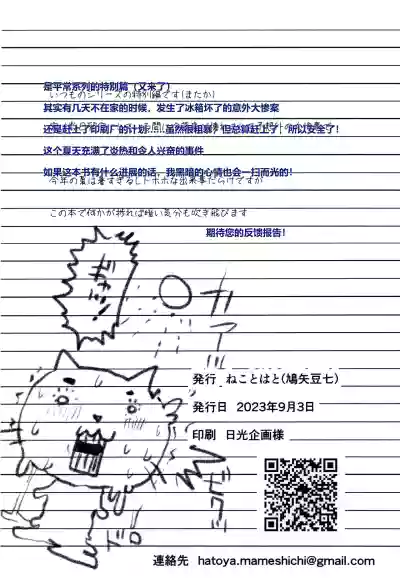 是平常系列的特别篇（又来了）
いつものシリーズの特別編です(またか)
其实有几天不在家的时候，发生了冰箱坏了的意外大惨案
还是赶上了印刷厂的计划！虽然很粗暴，但总算赶上了，所以安全了！
这个夏天充满了炎热和令人兴奋的事件
如果这本书有什么进展的话，我黑暗的心情也会一扫而光的！
今年の夏は暑すぎるしトホホな出来事だらけですが
この本で何かが捗れば暗い気分も吹き飛びます
期待您的反馈报告！
発行 ねことはと(鳩矢豆七)
発行日 2023年9月3日
印刷 日光企画様
連絡先 hatoya.mameshichi@gmail.com